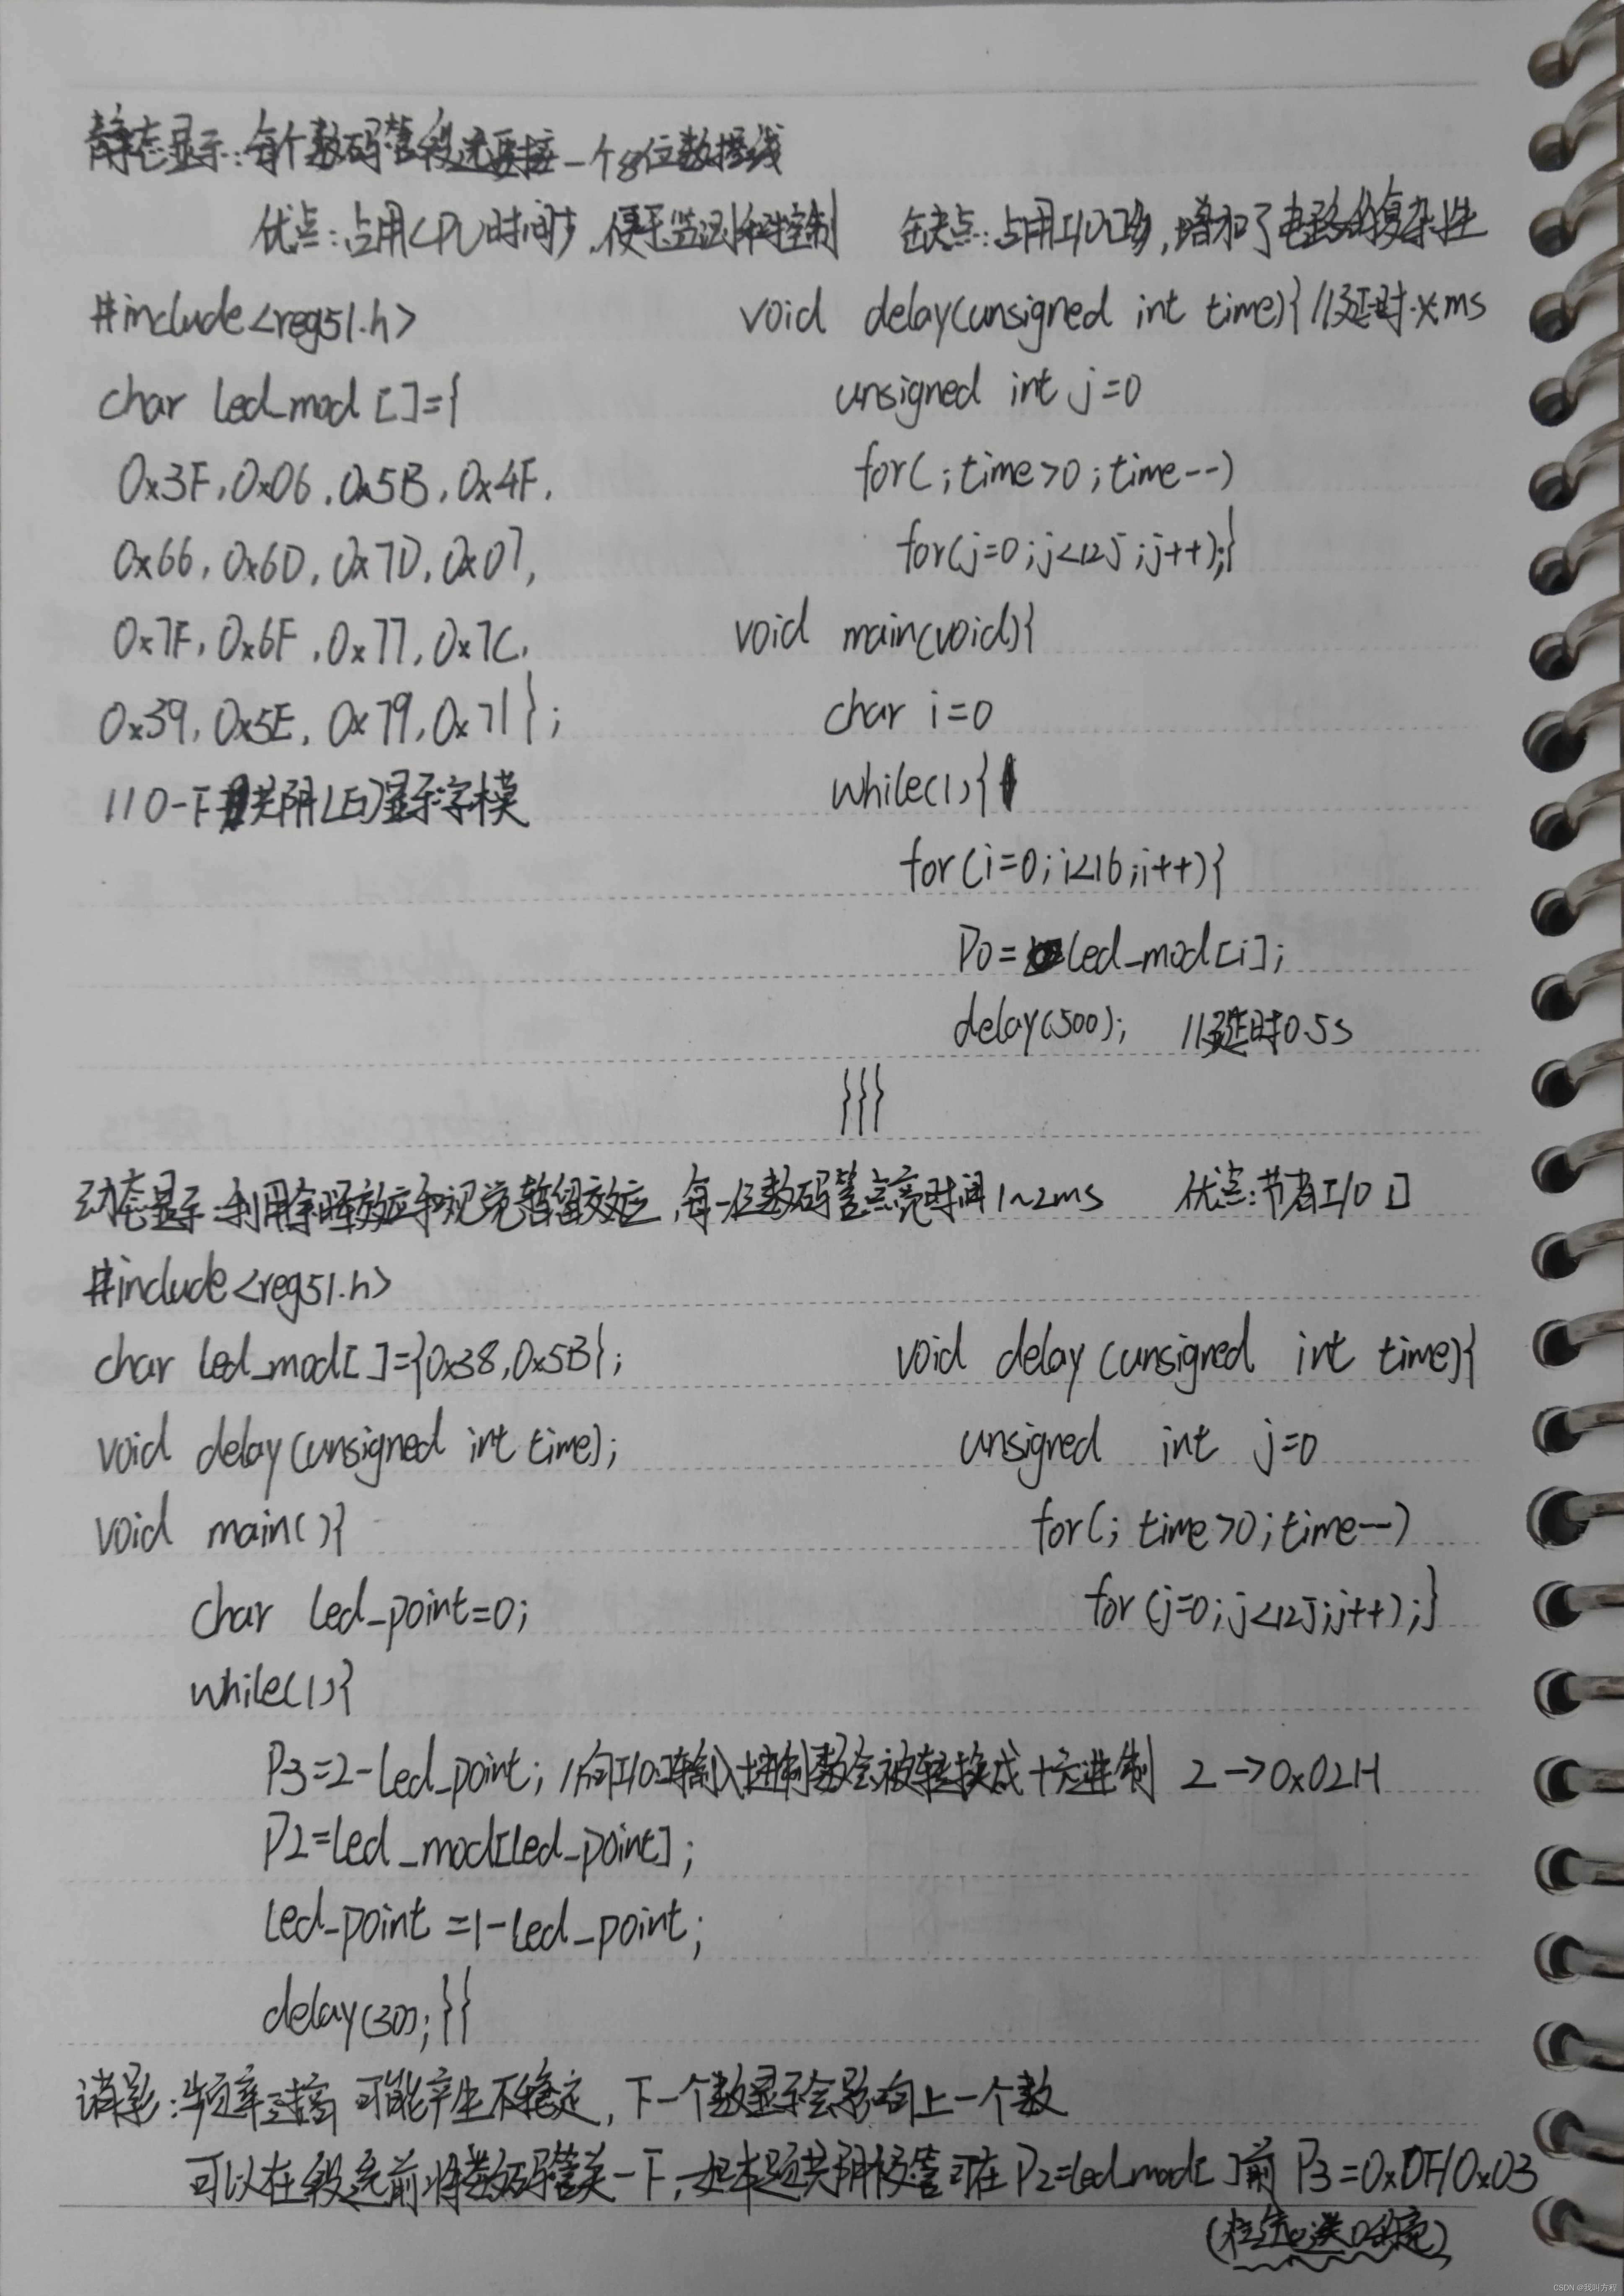 静态显示:每个数码管段选要接一个8位数据线
优点:占用CPU时间少,便于监测和控制 缺点:占用I/O口多,增加了电路的复杂性
#include<reg51.h>
char led_mod []={
0x3F,0x06,0x5B,0x4F,
0x66,0x6D,0x7D,0x07,
0x7F,0x6F,0x77,0x7C,
0x39,0x5E,0x79,0x71};
//0-F共阴LED显示字模
void delay(unsigned int time){ //延时xms
unsigned int j=0
for(;time>0;time--)
for(j=0;j<125;j++);}
void main(void){
char i=0
while(1){
for(i=0;i<16;i++){
P0=led_mod[i];
delay(500); //延时0.5s
}}}
动态显示:利用余晖效应和视觉暂留效应,每一位数码管点亮时间1~2ms 优点:节省I/O口
#include<reg51.h>
char led_mod[]={0x38,0x5B};
void delay(unsigned int time);
void main(){
char led_point=0;
while(1){
P3=2-led_point; //向I/O口输入十进制数会被转换成十六进制 2->0x02H
P2=led_mod[led_point];
led_point=1-led_point;
delay(30);}}
void delay(unsigned int time){
unsigned int j=0
for(; time>0;time--)
for(j=0;j<125;j++);}
消影:频率过高可能产生不稳定,下一个数显示会影响上一个数
可以在段选前将数码管关一下,如本题共阴极管可在P2=led_mod[]前 P3=0x0F/0x03